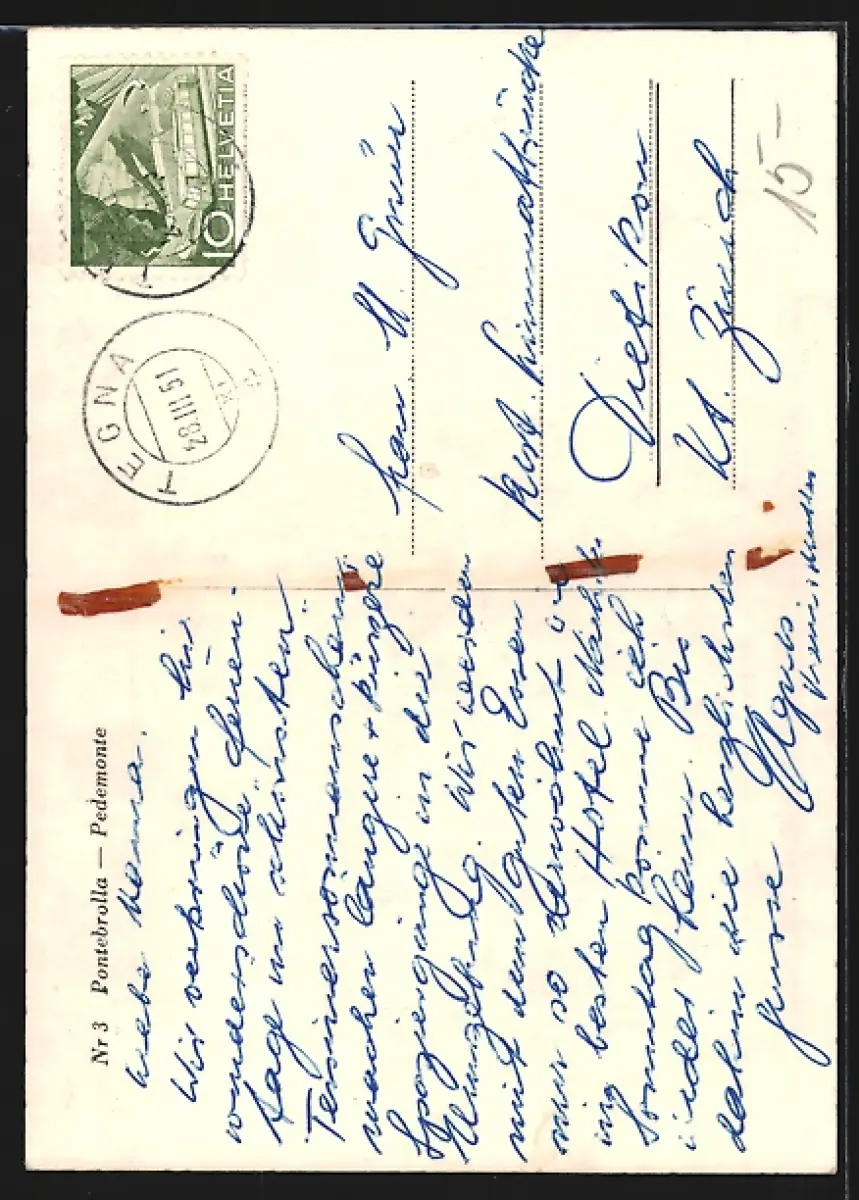 Nr 3 Pontebrolla — Pedemonte
Liebe Mama.
Wir verbringen hier
wunderschöne Ferien-
tage im schönsten
Tessinersonnenschein
machen längere + kürzere
Spaziergänge in die
Umgebung. Wir werden
mit dem guten Essen
nur so verwöhnt wie
im besten Hotel. Nächsten
Sonntag komme ich
wieder heim. Bis
dahin die herzlichsten
Grüsse
HELVETIA
10
TEGNA
28.III.51
Frau M.
Rest.
Dietikon
Kt. Zürich
15-